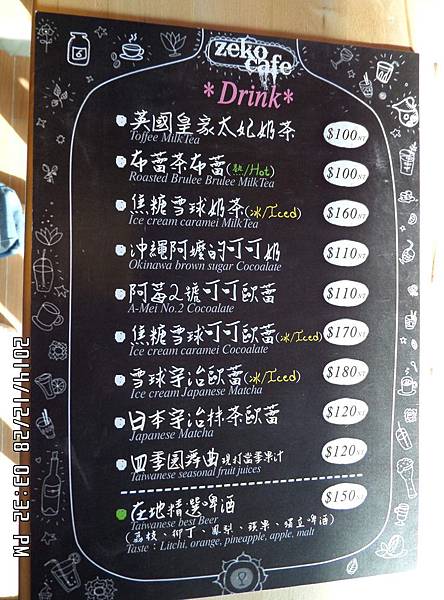 zeko
cafe
*Drink*
英國皇家太妃奶茶
Toffee MilkTea
$100NT
布蕾茶布蕾(熱/Hot)
Roasted Brulee Brulee MilkTea
$100NT
焦糖雪球奶茶(冰/Iced)
Ice cream caramei MilkTea
$160NT
沖繩阿嬤的可可奶
Okinawa brown sugar Cocoalate
$110NT
阿莓2號可可歐蕾
A-Mei No.2 Cocoalate
$110NT
焦糖雪球可可歐蕾(冰/Iced)
Ice cream caramei Cocoalate
$170NT
雪球宇治歐蕾(冰/Iced)
Ice cream Japanese Matcha
$180NT
日本宇治抹茶歐蕾
Japanese Matcha
$120NT
四季圓舞曲 現打當季果汁
Taiwanese seasonal fruit juices
$120NT
在地精選啤酒
Taiwanese best Beer
$150NT
(荔枝、柳丁、鳳梨、蘋果、獨立啤酒)
Taste：Litchi, orange, pineapple, apple, malt
2014/12/28 03:32 PM